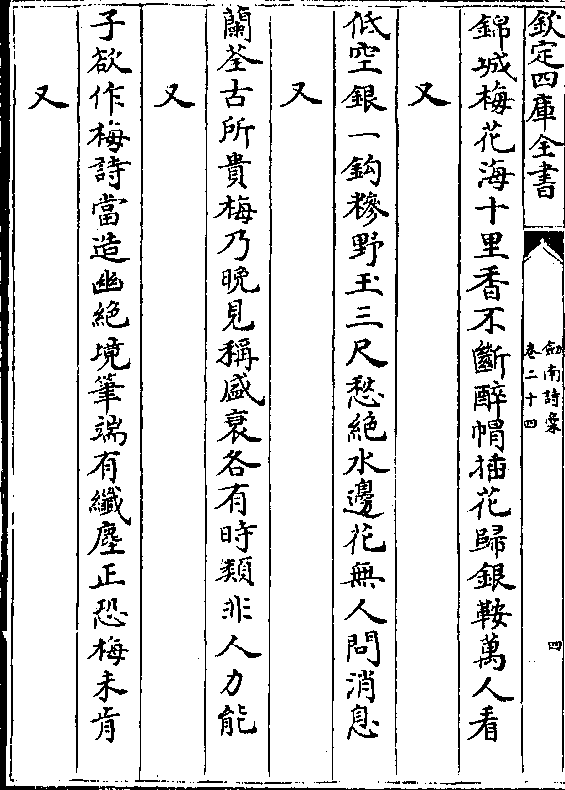 欽定四庫全書
劍南詩稾
卷二十四
四
錦城梅花海十里香不斷醉㡌揷花歸銀鞍萬人看
又
低空銀一鈎糝野玉三尺愁絶水邊花無人問消息
又
蘭荃古所貴梅乃晚見稱盛衰各有時類非人力能
又
子欲作梅詩當造幽絶境筆端有纖塵正恐梅未肯
又